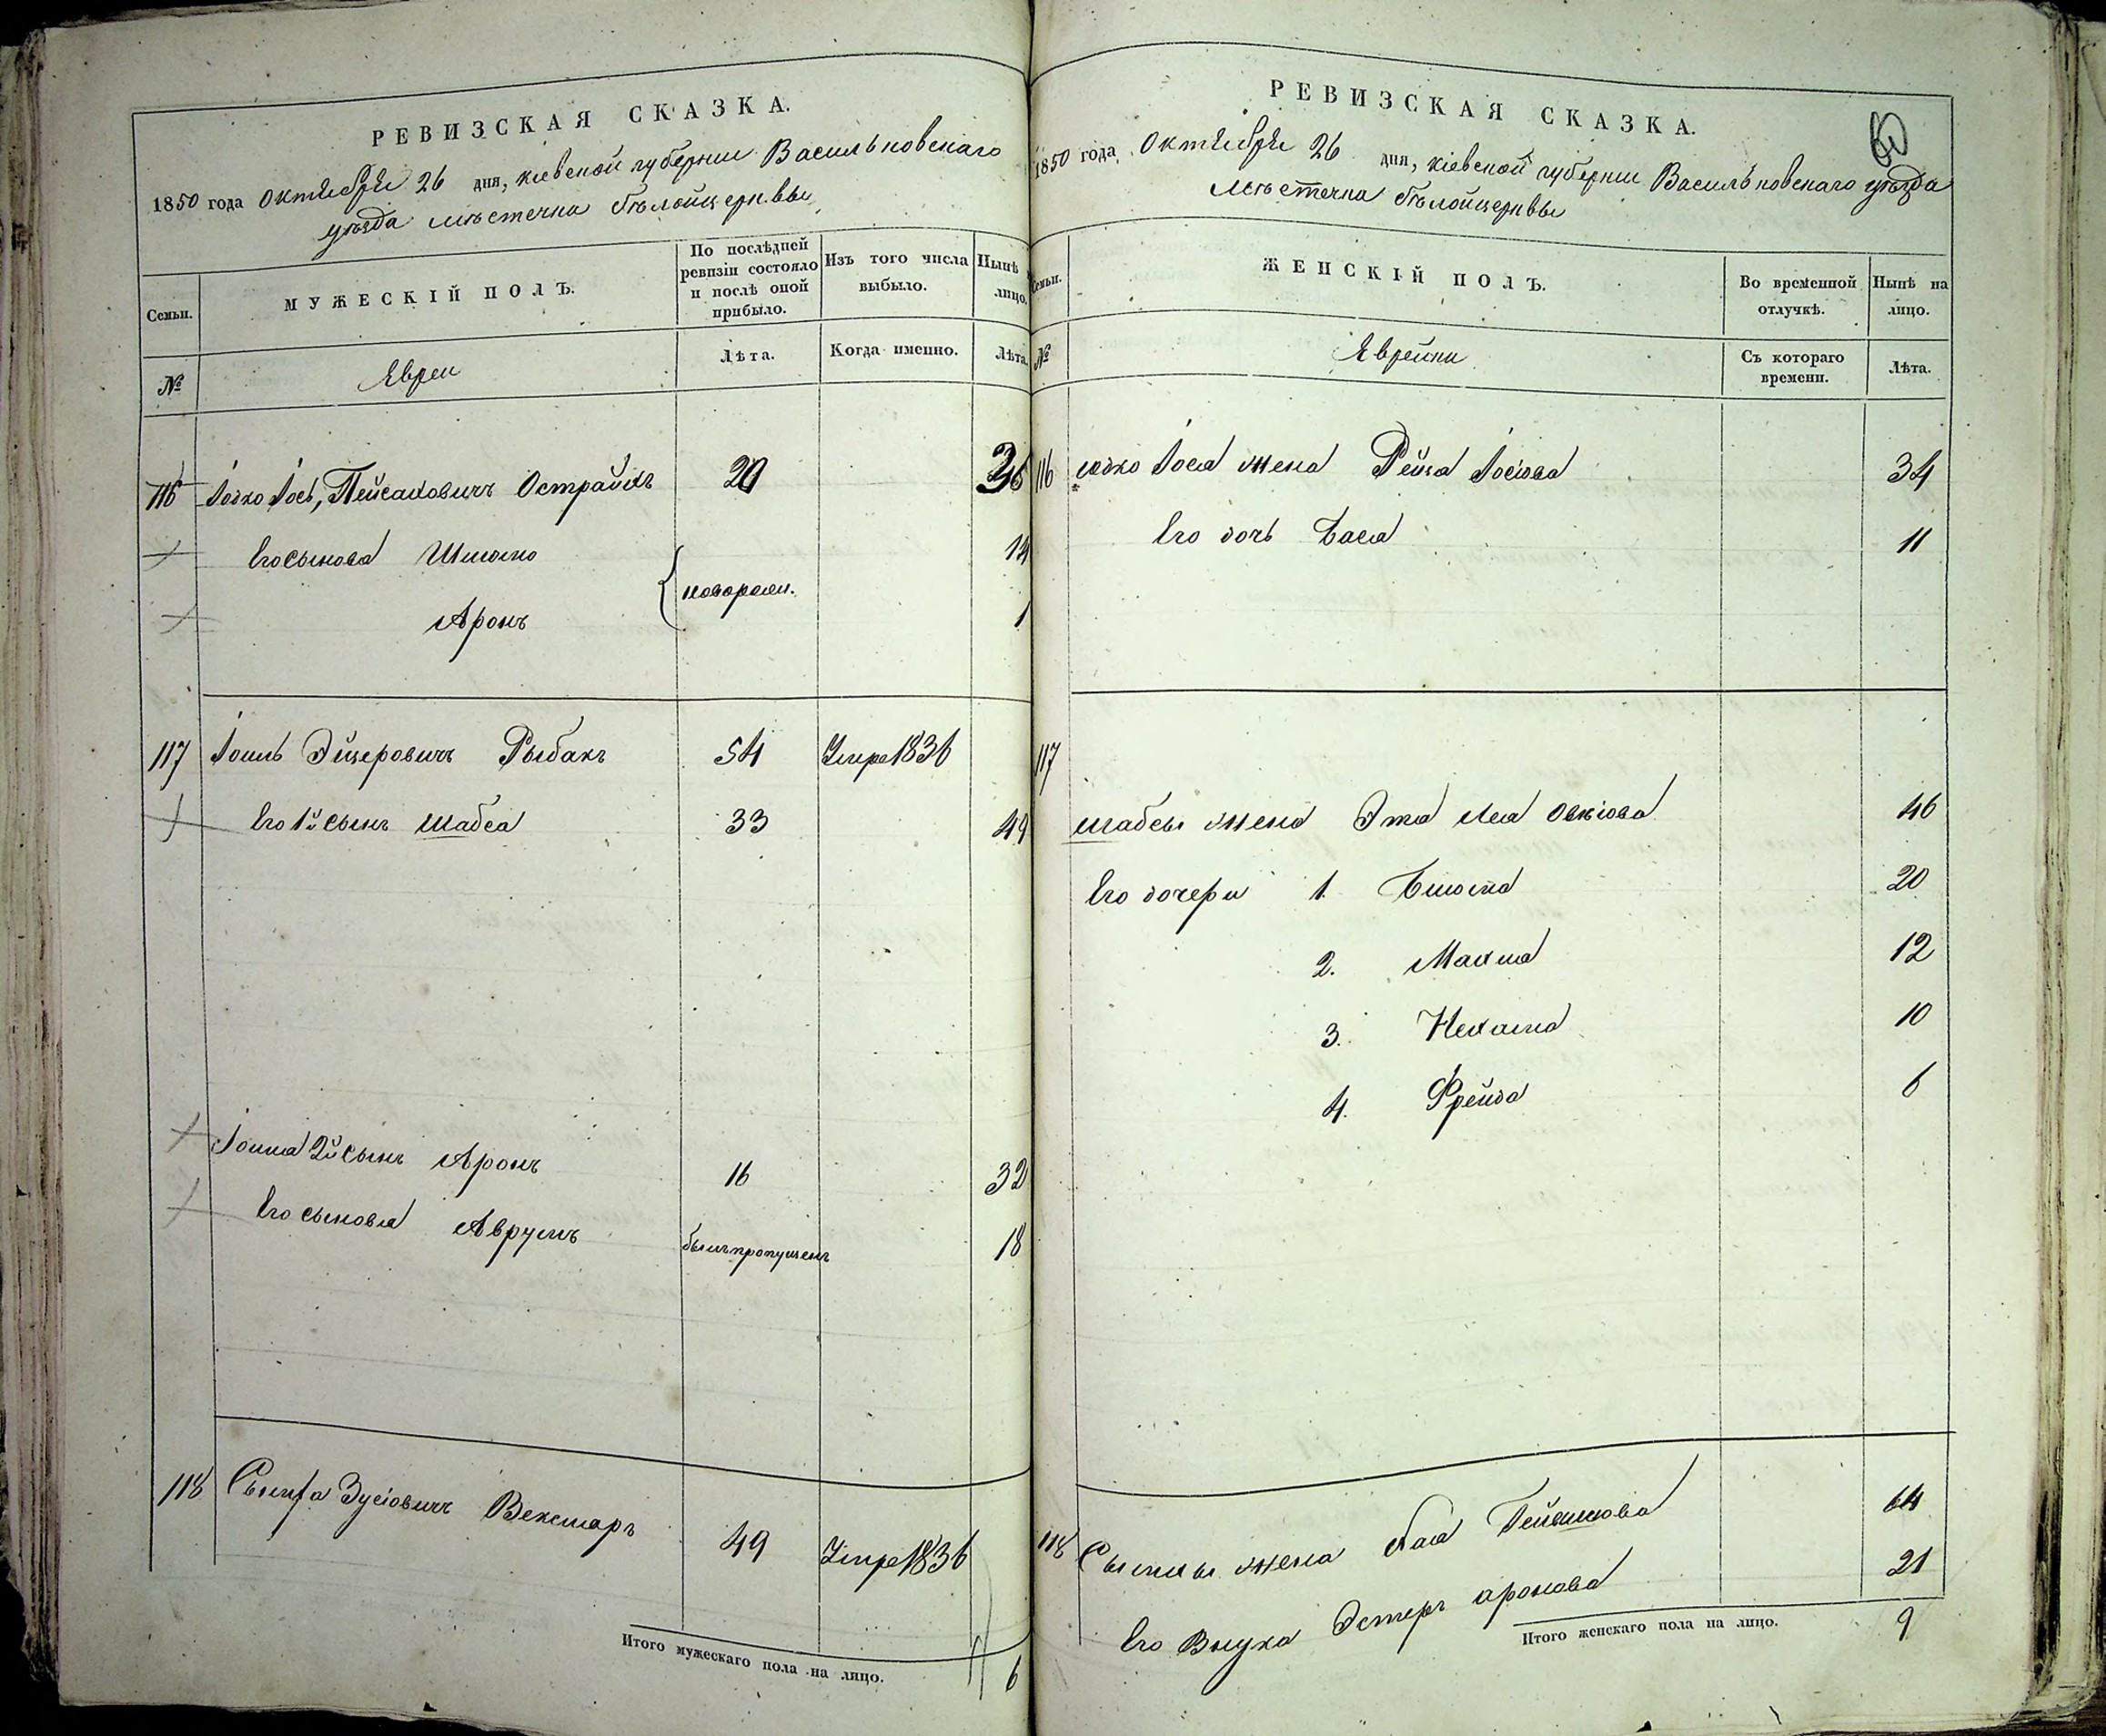 РЕВИЗСКАЯ СКАЗКА.
1850 года Октября 26 дня, Кіевской губерніи Васильковскаго
уѣзда мѣстечка Бѣлойцеркви
Семьи. МУЖЕСКІЙ ПОЛЪ. По послѣдней ревизіи состояло и послѣ оной прибыло. Изъ того числа выбыло. Нынѣ лицо.
№ Евреи Лѣта. Когда именно. Лѣта.
116 Іоско Іось, Пейсаховичъ Острайхъ 20 36
Его сынова Шлиомо новорожд. 14
Аронъ 1
117 Іоиль Эйзеровичъ Рыбакъ 54 Умре 1836
Его 1й сынъ Шабса 33 49
Іоиля 2й сынъ Аронъ 16 32
Его сыновья Аврумъ былъ пропущенъ 18
118 Зусіовичъ Векслеръ 49 Умре 1836
Итого мужескаго пола на лицо. 6
РЕВИЗСКАЯ СКАЗКА.
1850 года Октября 26 дня, Кіевской губерніи Васильковскаго уѣзда
мѣстечка Бѣлойцеркви
Семьи. ЖЕНСКІЙ ПОЛЪ. Во временной отлучкѣ. Нынѣ на лицо.
№ Еврейки Съ котораго времени. Лѣта.
116 Іоса жена Рейза Іосіова 34
Его дочь Бася 11
117
Шабсы жена Эта Лея 46
Его дочери 1. 20
2. Махля 12
3. Нехама 10
4. Фрейда 6
118 жена Хая 64
Его Внука Эстеръ Аронова 21
Итого женскаго пола на лицо. 9